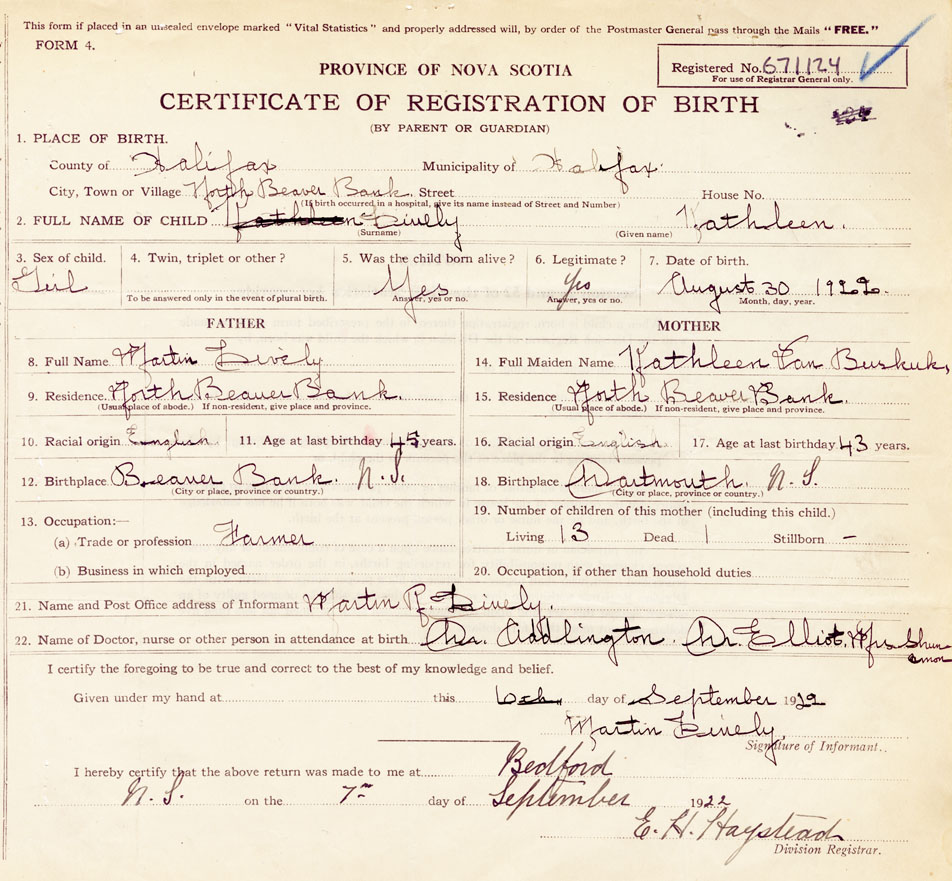 This form if placed in an unsealed envelope marked "Vital Statistics" and properly addressed will, by order of the Postmaster General pass through the Mails "FREE."
FORM 4.
Registered No. 671124
For use of Registrar General only.
PROVINCE OF NOVA SCOTIA
CERTIFICATE OF REGISTRATION OF BIRTH
(BY PARENT OR GUARDIAN)
1. PLACE OF BIRTH.
County of Halifax Municipality of Halifax
City, Town or Village North Beaver Bank. Street House No.
(If birth occurred in a hospital, give its name instead of Street and Number)
2. FULL NAME OF CHILD Kathleen Lively Kathleen.
(Surname) (Given name)
3. Sex of child. 4. Twin, triplet or other? 5. Was the child born alive? 6. Legitimate? 7. Date of birth.
Girl Yes Yes August 30 1922.
To be answered only in the event of plural birth. Answer, yes or no. Answer, yes or no. Month, day, year.
FATHER MOTHER
8. Full Name Martin Lively 14. Full Maiden Name Kathleen Van Buskuk,
9. Residence. North Beaver Bank. 15. Residence North Beaver Bank.
(Usual place of abode.) If non-resident, give place and province. (Usual place of abode.) If non-resident, give place and province.
10. Racial origin English 11. Age at last birthday 45 years. 16. Racial origin English 17. Age at last birthday 43 years.
12. Birthplace Beaver Bank. N.S. 18. Birthplace Dartmouth. N.S.
(City or place, province or country.) (City or place, province or country.)
13. Occupation:— 19. Number of children of this mother (including this child.)
(a) Trade or profession Farmer Living 13 Dead 1 Stillborn –
(b) Business in which employed 20. Occupation, if other than household duties
21. Name and Post Office address of Informant Martin R. Lively.
22. Name of Doctor, nurse or other person in attendance at birth Dr. Addlington. Dr. Elliot, Mrs
I certify the foregoing to be true and correct to the best of my knowledge and belief.
Given under my hand at this 6th day of September 1922
Martin Lively,
Signature of Informant.
I hereby certify that the above return was made to me at Bedford
N.S. on the 7th day of September 1922
E. H. Haystead
Division Registrar.